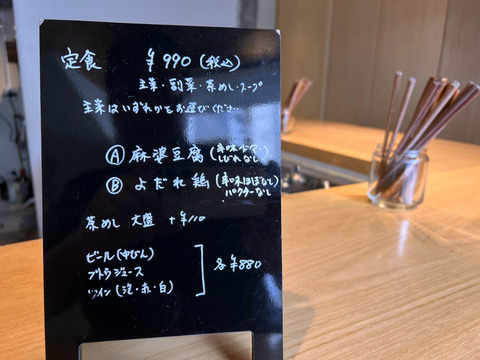 定食 ¥990(税込)
主菜・副菜・茶めし・スープ
主菜はいずれかをお選びください
Ⓐ 麻婆豆腐(辛味少々 しびれなし)
Ⓑ よだれ鶏(辛味ほぼなし パクチーなし)
茶めし 大盛 +¥110
ビール(中びん)
ブドウジュース
ワイン(泡・赤・白)
各¥880